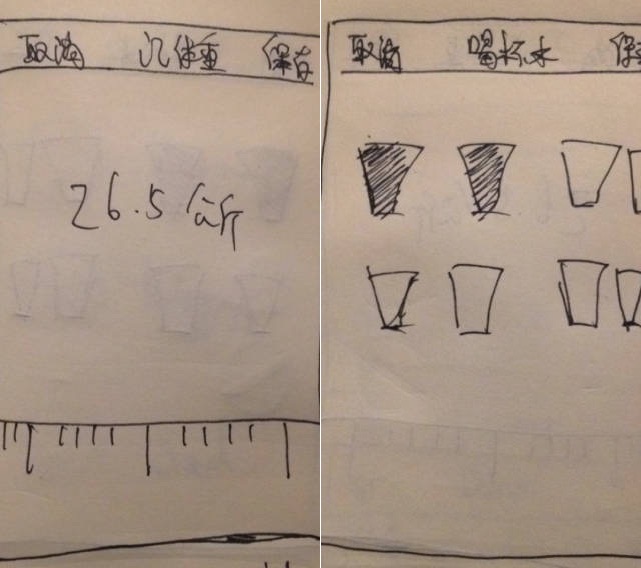 取消 记体重 保存
26.5公斤
取消 喝杯水 保存